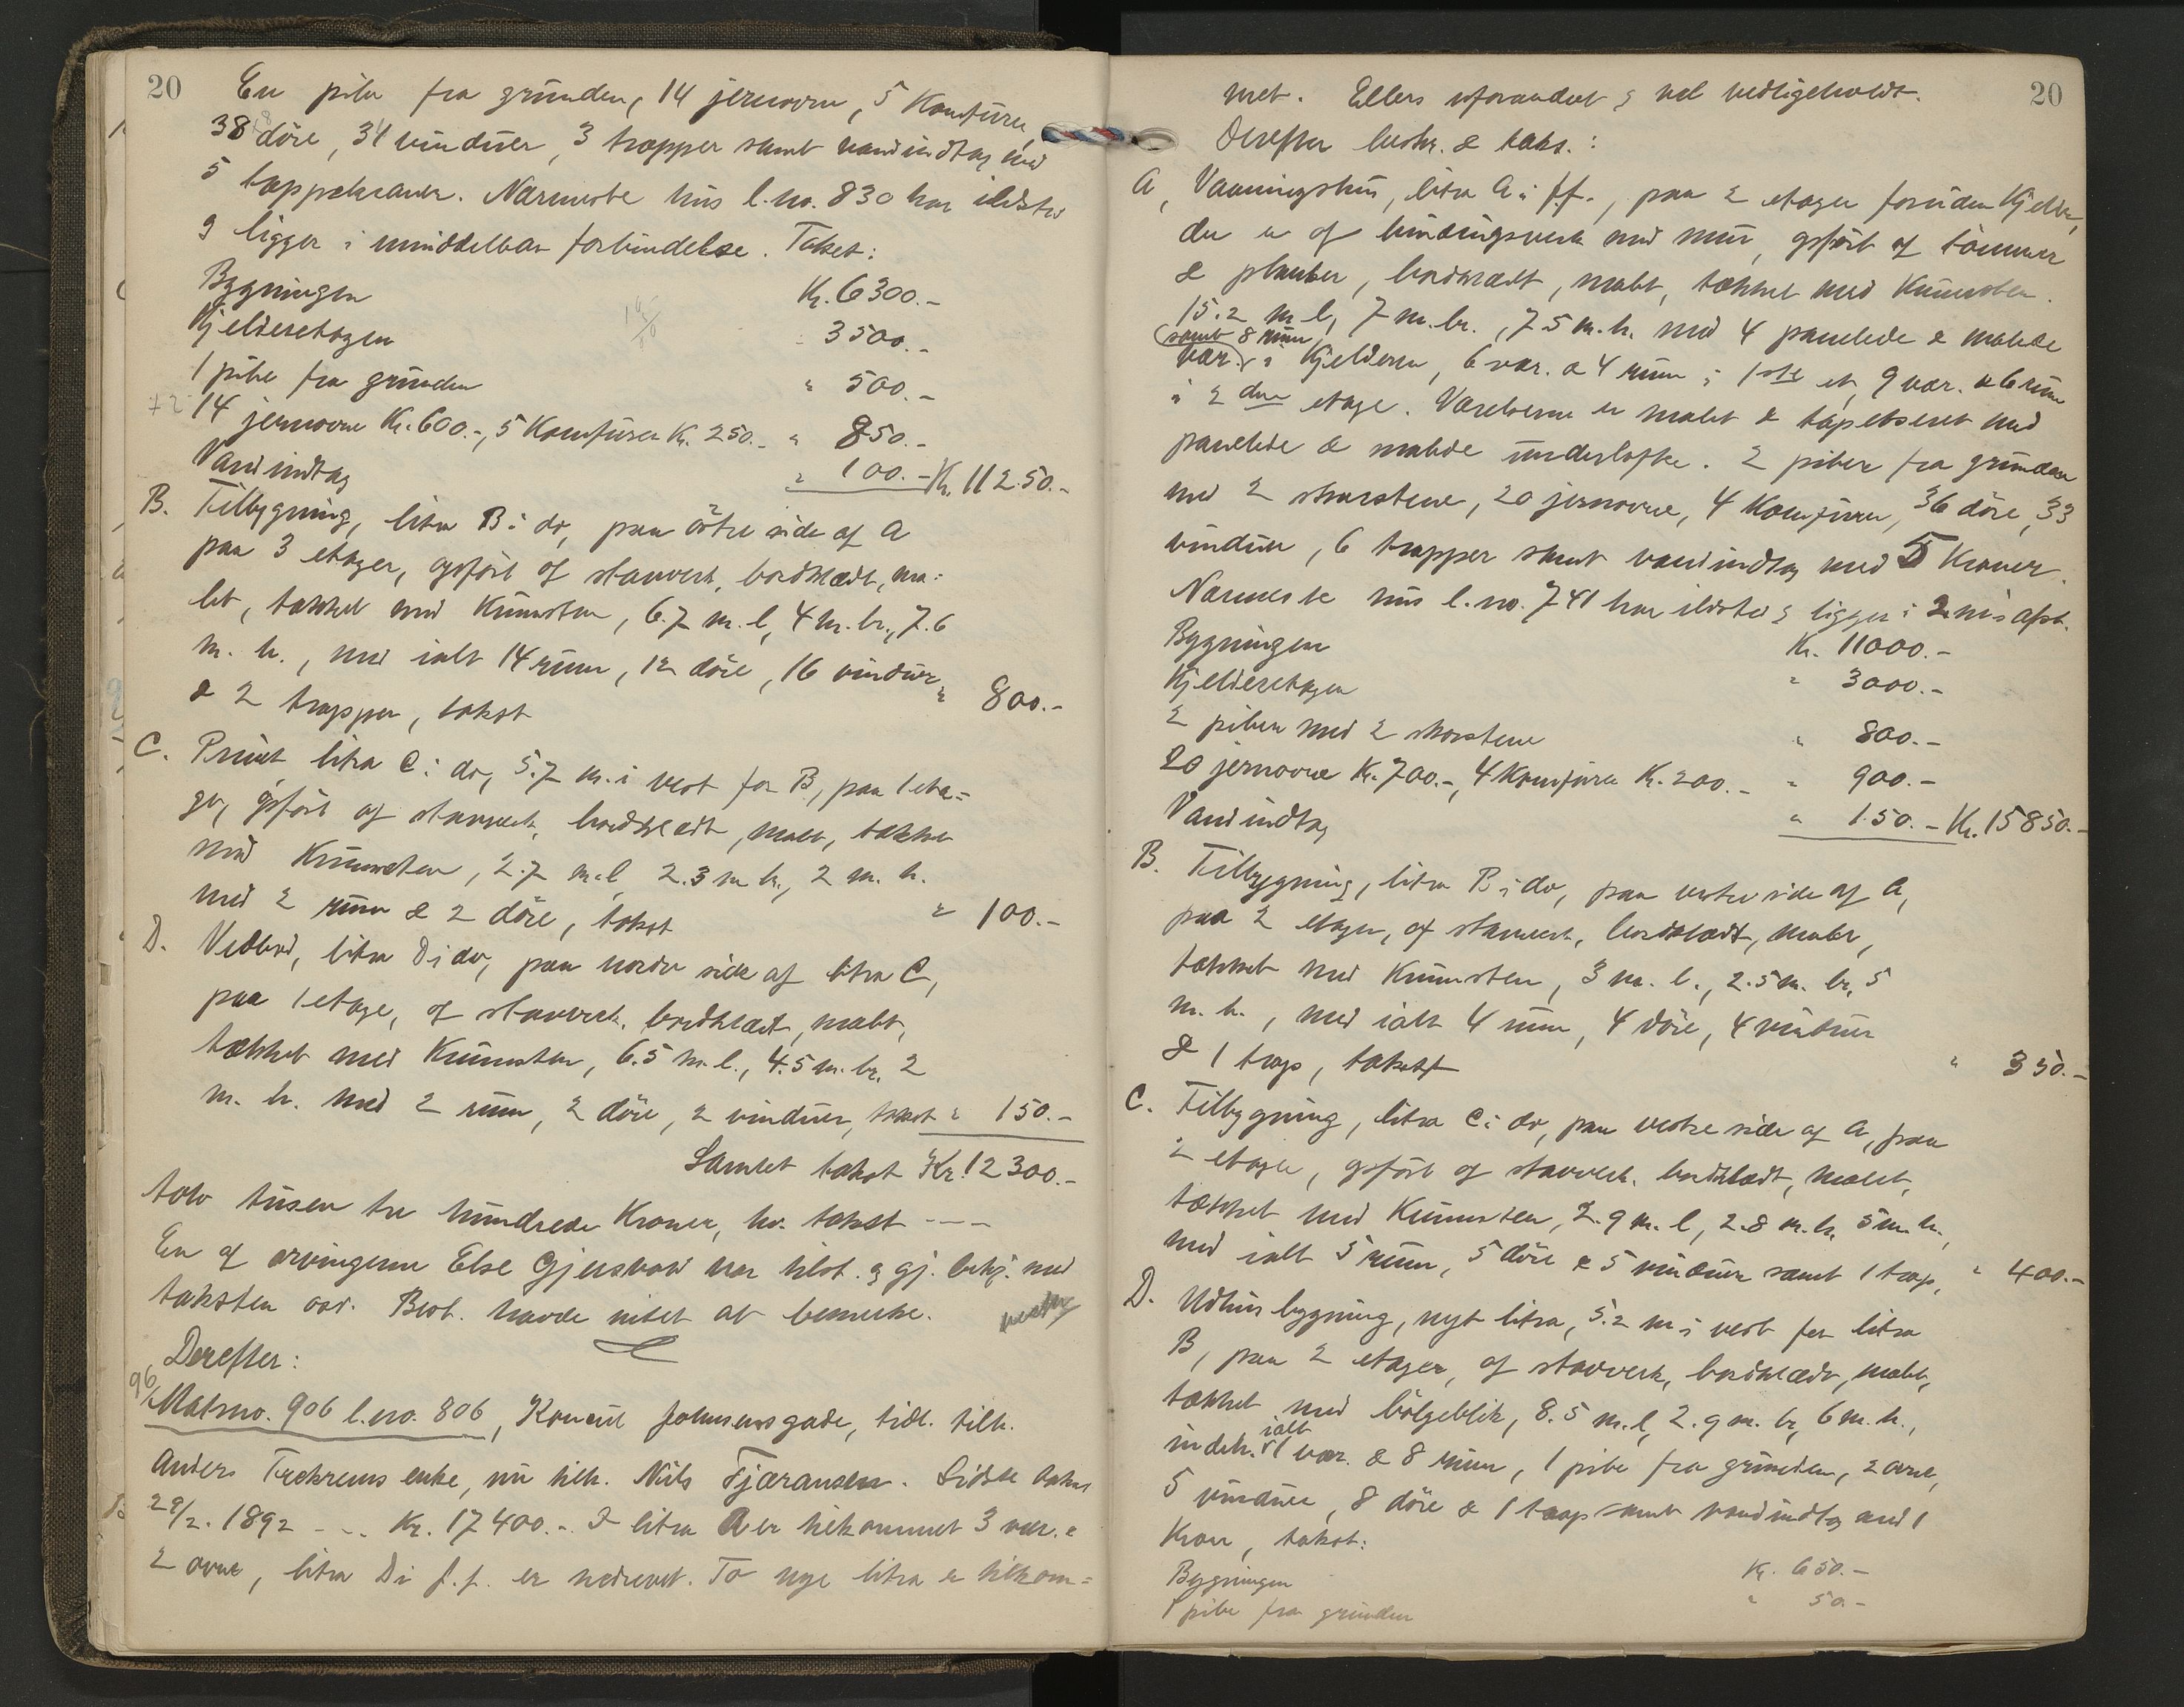 20
En pibe fra grunden, 14 jernovne, 5 Komfurer,
38 döre, 34 vinduer, 3 trapper samt vandindtag med
5 tappekraner. Nærmeste hus l.no. 830 har ildsted
& ligger i umiddelbar forbindelse. Takst:
Bygningen Kr. 6300.-
Kjelderetagen " 3500.-
1 pibe fra grunden " 500.-
14 jernovne Kr. 600.-, 5 Komfurer Kr. 250.- " 850.-
Vandindtag " 100.- Kr. 11250.-
B. Tilbygning, litra B i do, paa östre side af A
paa 3 etager, opfört af stavverk, bordklædt, ma=
let, tækket med Kunsten, 6.7 m. l, 4 m. br., 7.6
m. h., med ialt 14 rum, 12 döre, 16 vinduer
& 2 trapper, takst " 800.-
C. Privet litra C i do, 5.7 m. i vest for B, paa 1 eta=
ge, opfört af stavverk, bordklædt, malt, tækket
med Kunsten, 2.7 m. l, 2.3 m br., 2 m. h.
med 2 rum & 2 döre, takst " 100.-
D. Vedbod, litra D i do, paa nordre side af litra C,
paa 1 etage, af stavverk, bordklædt, malt,
tækket med Kunsten, 6.5 m. l., 4.5 m. br. 2
m. h. med 2 rum, 2 döre, 2 vinduer, takst " 150.-
Samlet takst Kr. 12300.-
tolv tusen tre hundrede Kroner, hv. takst ---
En af arvingerne Else Gjersvold var tilst. & gj. bekj. med
taksten  Best. havde intet at bemerke.
Derefter:
96/ Matrno. 906 l.no. 806, Konsul Johnsensgade, tidl. tilh.
Anders Trekrems enke, nu tilh. Nils Fjæransen. Sidste takst
29/2. 1892 - .. Kr. 17400.- I litra A er tilkommet 3 vær. &
2 ovne, litra D i f.f. er nedrevet. To nye litra er tilkom=
20
met. Ellers uforandret & vel vedligeholdt.
Derefter beskr. & takst.:
A, Vaaningshus, litra A i ff., paa 2 etager foruden Kjelder,
der er af bindingsverk med mur, opfört af tömmer
& planker, bordklædt, malt, tækket med Kunsten.
15.2 m. l, 7 m. br., 7.5 m. h. med 4 panelede & malede
samt 8 rum
vær. i Kjelderen, 6 vær. & 4 rum i 1ste et, 9 vær. & 6 rum
i 2den etage. Værelserne er malet & tapetseret med
panelede & malede underlofte. 2 piber fra grunden
med 2 skorstene, 20 jernovne, 4 Komfurer, 36 döre, 33
vinduer, 6 trapper samt vandindtag med 5 Kraner.
Nærmeste hus l.no. 741 har ildsted & ligger i 2 m's afst.
Bygningen Kr. 11000.-
Kjelderetagen " 3000.-
2 piber med 2 skorstene " 800.-
20 jernovne Kr. 700.-, 4 Komfurer Kr. 200.- " 900.-
Vandindtag " 150.- Kr. 15850.-
B. Tilbygning, litra B i do, paa vestre side af A,
paa 2 etager, af stavverk, bordklædt, malt,
tækket med Kunsten, 3 m. l., 2.5 m. br, 5
m. h., med ialt 4 rum, 4 döre, 4 vinduer
& 1 trap, takst " 350.-
C. Tilbygning, litra C i do, paa vestre side af A, paa
2 etager, opfört af stavverk, bordklædt, malet,
tækket med Kunsten, 2.9 m. l, 2.8 m. br, 5 m. h.,
med ialt 5 rum, 5 döre & 5 vinduer samt 1 trap, " 400.-
D. Udhusbygning, nyt litra, 5.2 m i vest for litra
B, paa 2 etager, af stavverk, bordklædt, malt,
tækket med bölgeblik, 8.5 m. l, 2.9 m. br, 6 m. h.,
ialt
indeh. 1 vær. & 8 rum, 1 pibe fra grunden, 2 ovne,
5 vinduer, 8 döre & 1 trap samt vandindtag med 1
Kran, takst:
Bygningen Kr. 650.-
1 pibe fra grunden " 50.-